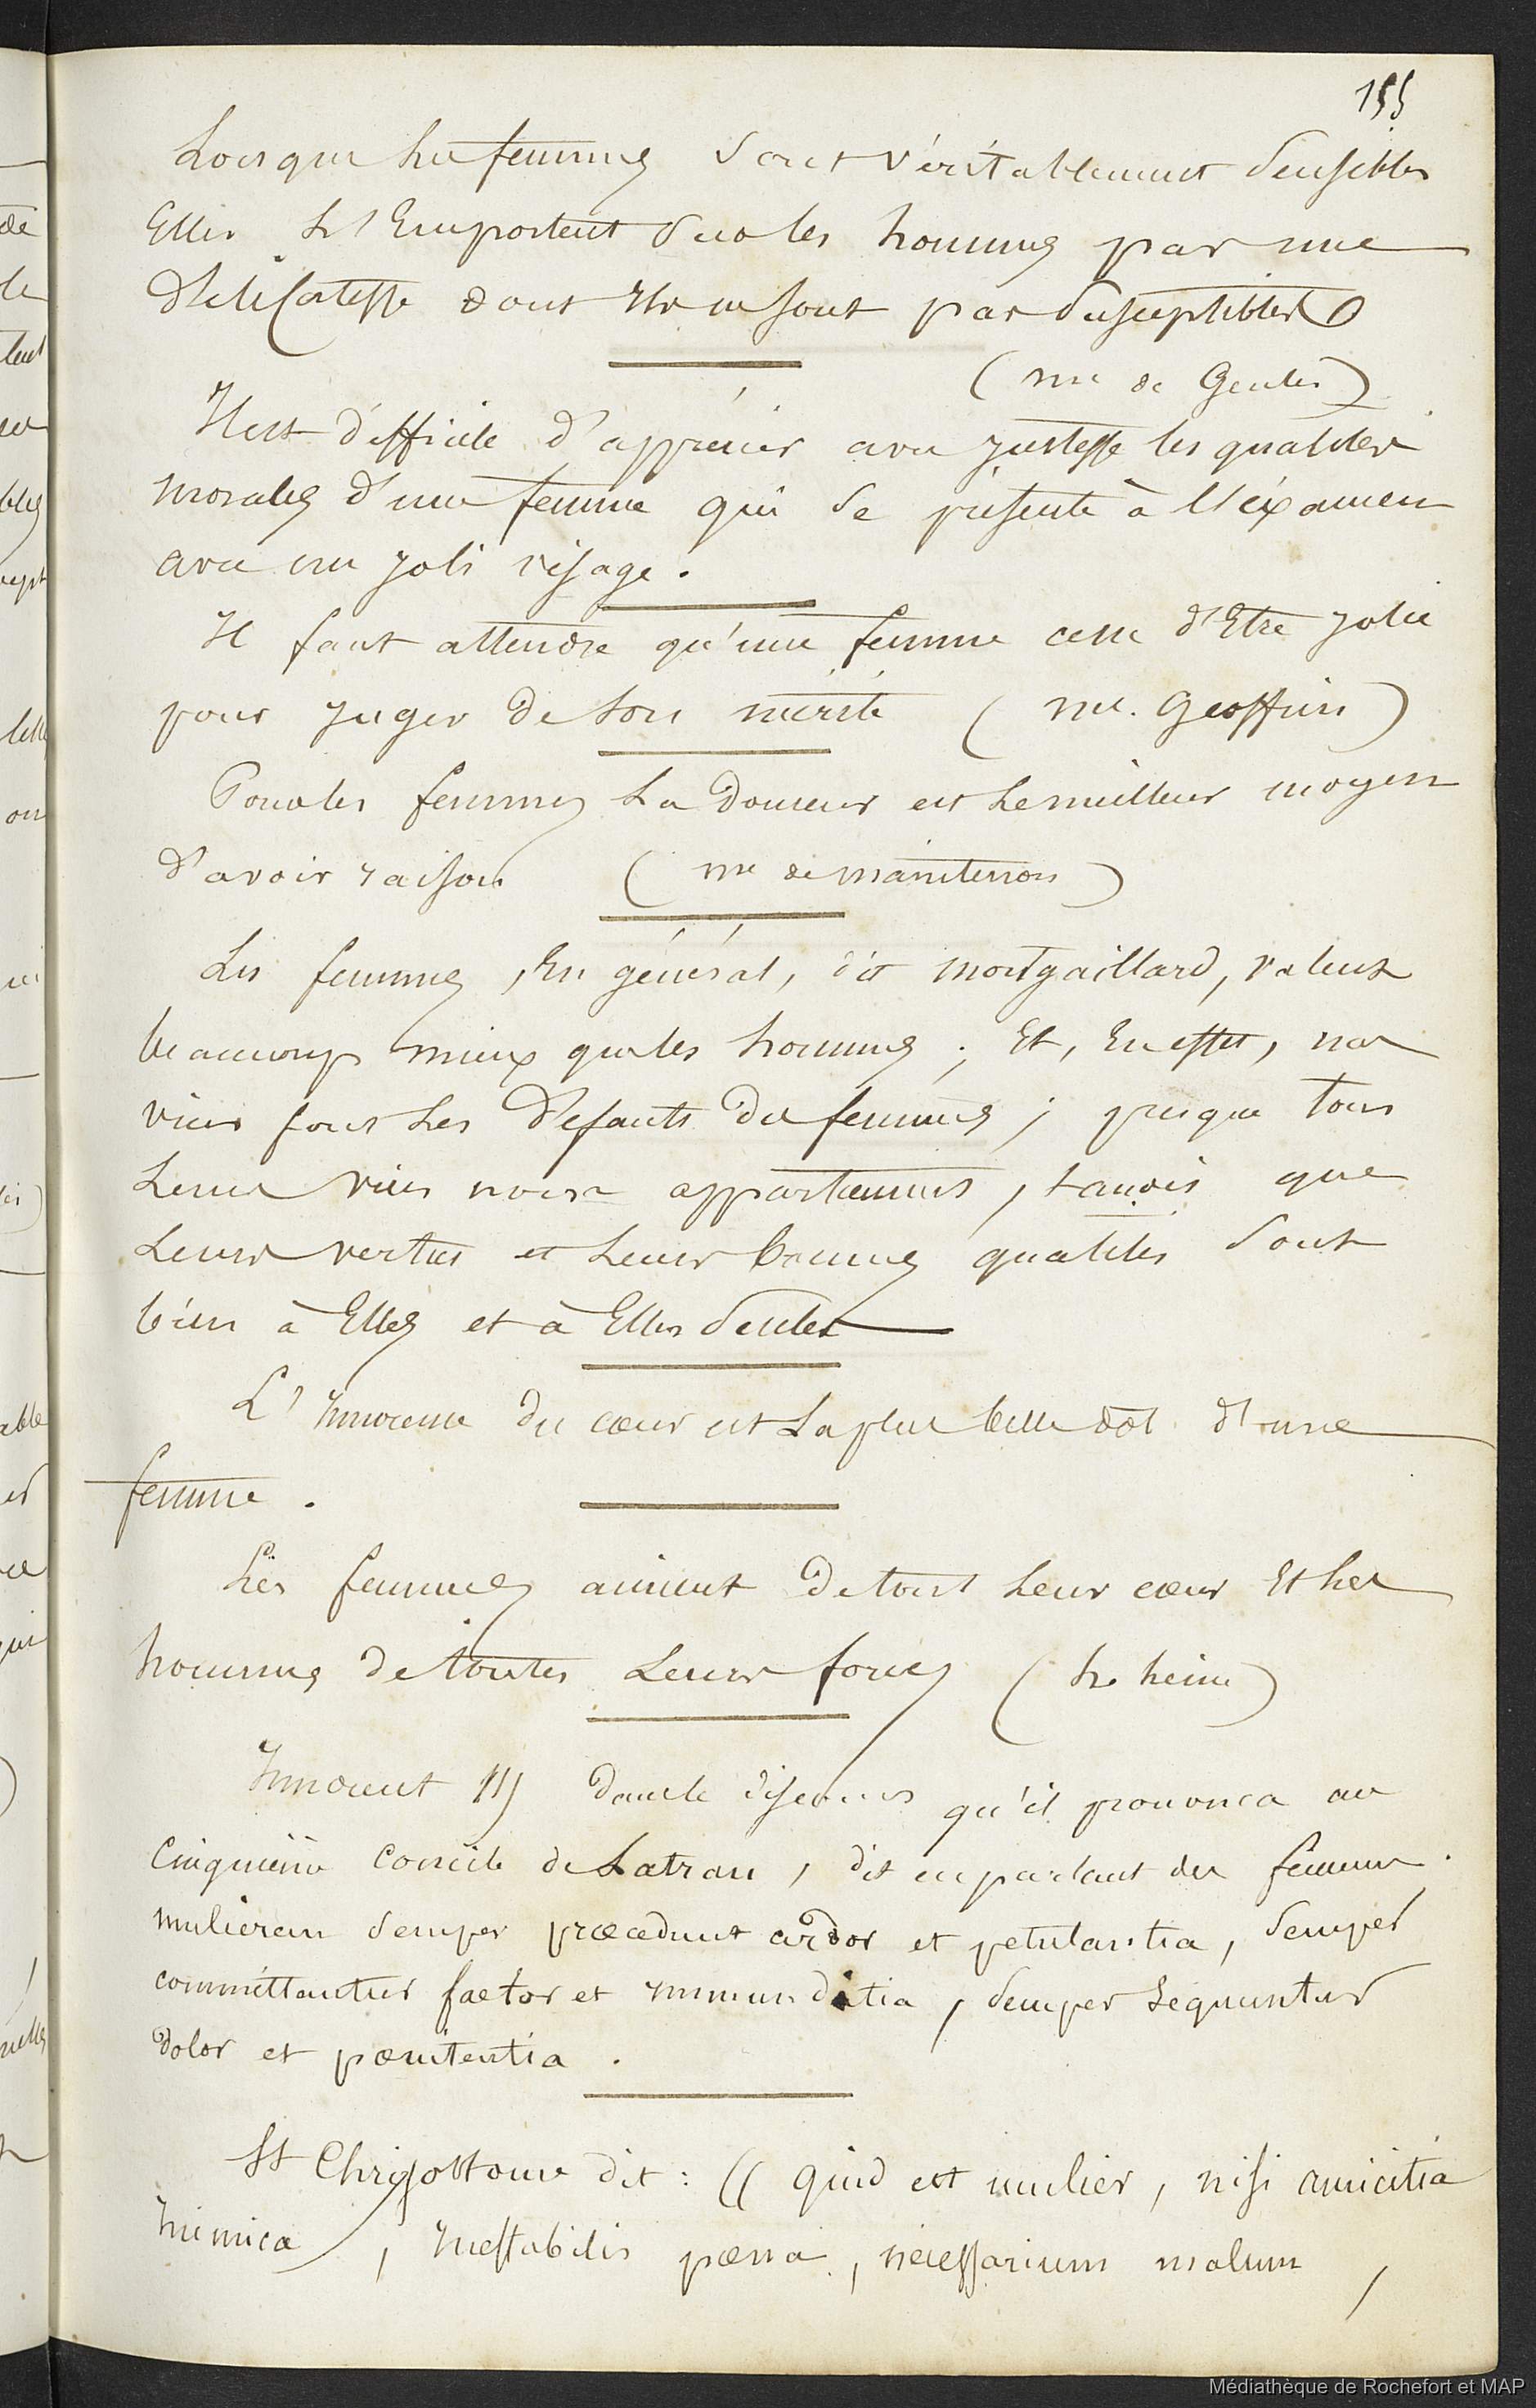 155
Lorsque les femmes sont véritablement sensibles
Elles L'Emportent sur les hommes par une
délicatesse dont Ils ne sont pas susceptibles
(me de Genlis)
Il est difficile d'apprécier avec justesse les qualités
morales d'une femme qui se présente à l'éxamen
avec un joli visage.
Il faut attendre qu'une femme cesse d'Etre jolie
pour juger de son mérite (me. Geoffrin)
Pour les femmes La douceur est Le meilleur moyen
d'avoir raison (me de maintenon)
Les femmes, En général, dit montgaillard, valent
beaucoup mieux que les hommes ; Et, En effet, nos
vices font Les défauts des femmes ; presque tous
Leurs vices nous appartiennent, tandis que
Leurs vertus et Leurs bonnes qualités sont
bien à Elles et à Elles seules
L'Innocence du cœur est La plus belle dot d'une
femme.
Les femmes aiment de tout Leur cœur Et Les
hommes de toutes Leurs forces (h. heine)
Innocent III dans le discours qu'il prononca au
Cinquième concile de Latran, dit en parlant des femmes.
mulierem semper præcedunt ardor et petulantia, semper
committantur fætor et immunditia, semper sequuntur
dolor et pœnitentia.
St Chrisostome dit : (( quid est mulier, nisi amicitia
inimica, Ineffabilis pœna, necessarium malum,
Médiathèque de Rochefort et MAP